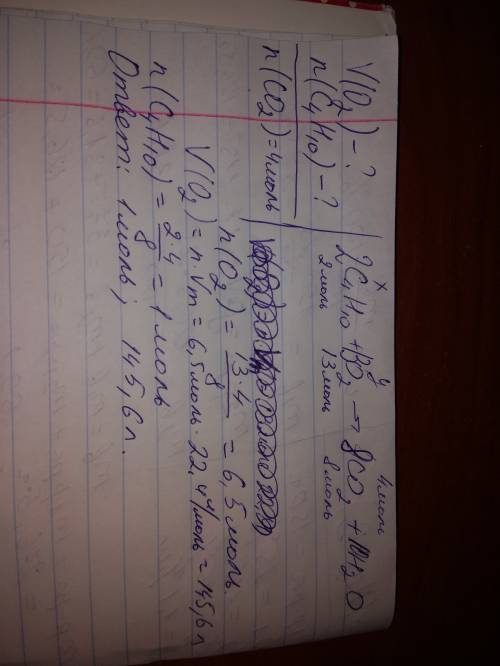 V(O₂) - ?
n(C₄H₁₀) - ?
n(CO₂) = 4 моль
x y 4 моль
2C₄H₁₀ + 13O₂ → 8CO₂ + 10H₂O
2 моль 13 моль 8 моль
n(O₂) = 13·4/8 = 6,5 моль
V(O₂) = n·Vm = 6,5 моль·22,4 л/моль = 145,6 л
n(C₄H₁₀) = 2·4/8 = 1 моль
Ответ: 1 моль; 145,6 л.